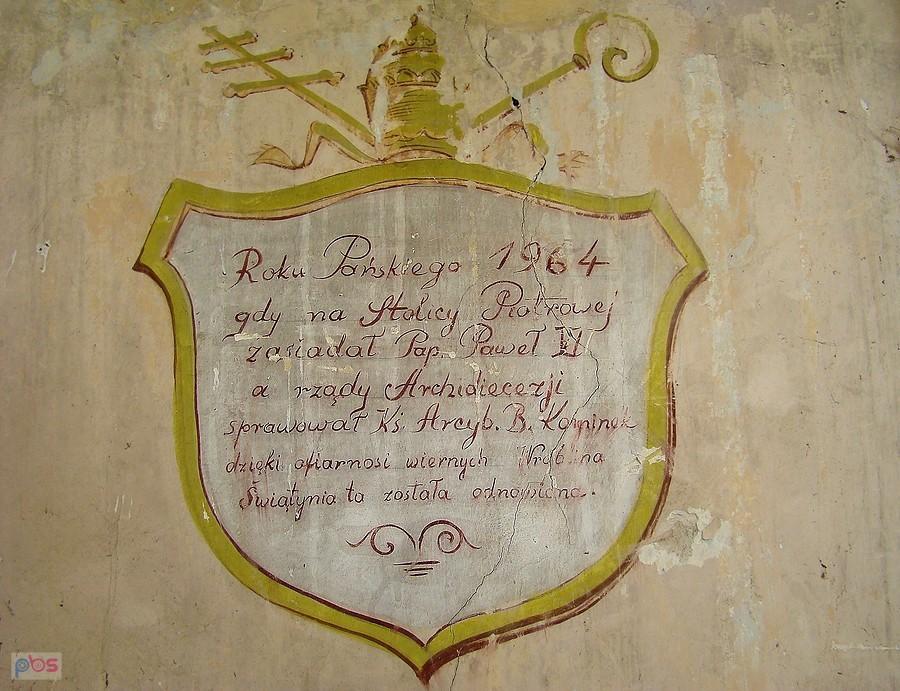 Roku Pańskiego 1964
gdy na Stolicy Piotrowej
zasiadał Pap. Paweł VI
a rządy Archidiecezji
sprawował Ks. Arcyb. B. Kominek
dzięki ofiarnosi wiernych Wróblina
Świątynia ta została odnowiona.
pbs